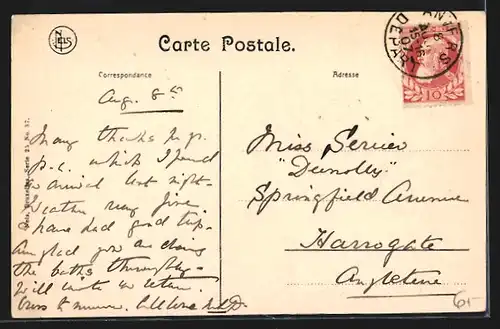 NELS
Carte Postale.
Correspondance
Adresse
ANVERS
DEPART
10
Aug. 8th
Many thanks for yr.
p.c. which I found
on arrival last night.
Weather very fine,
have had good trip.
Am glad you are doing
the baths thoroughly
Will write on return.
Miss
"Deenolly"
Springfield Avenue
Harrogate
Angleterre
Nels, Bruxelles, Serie 25 No. 37.